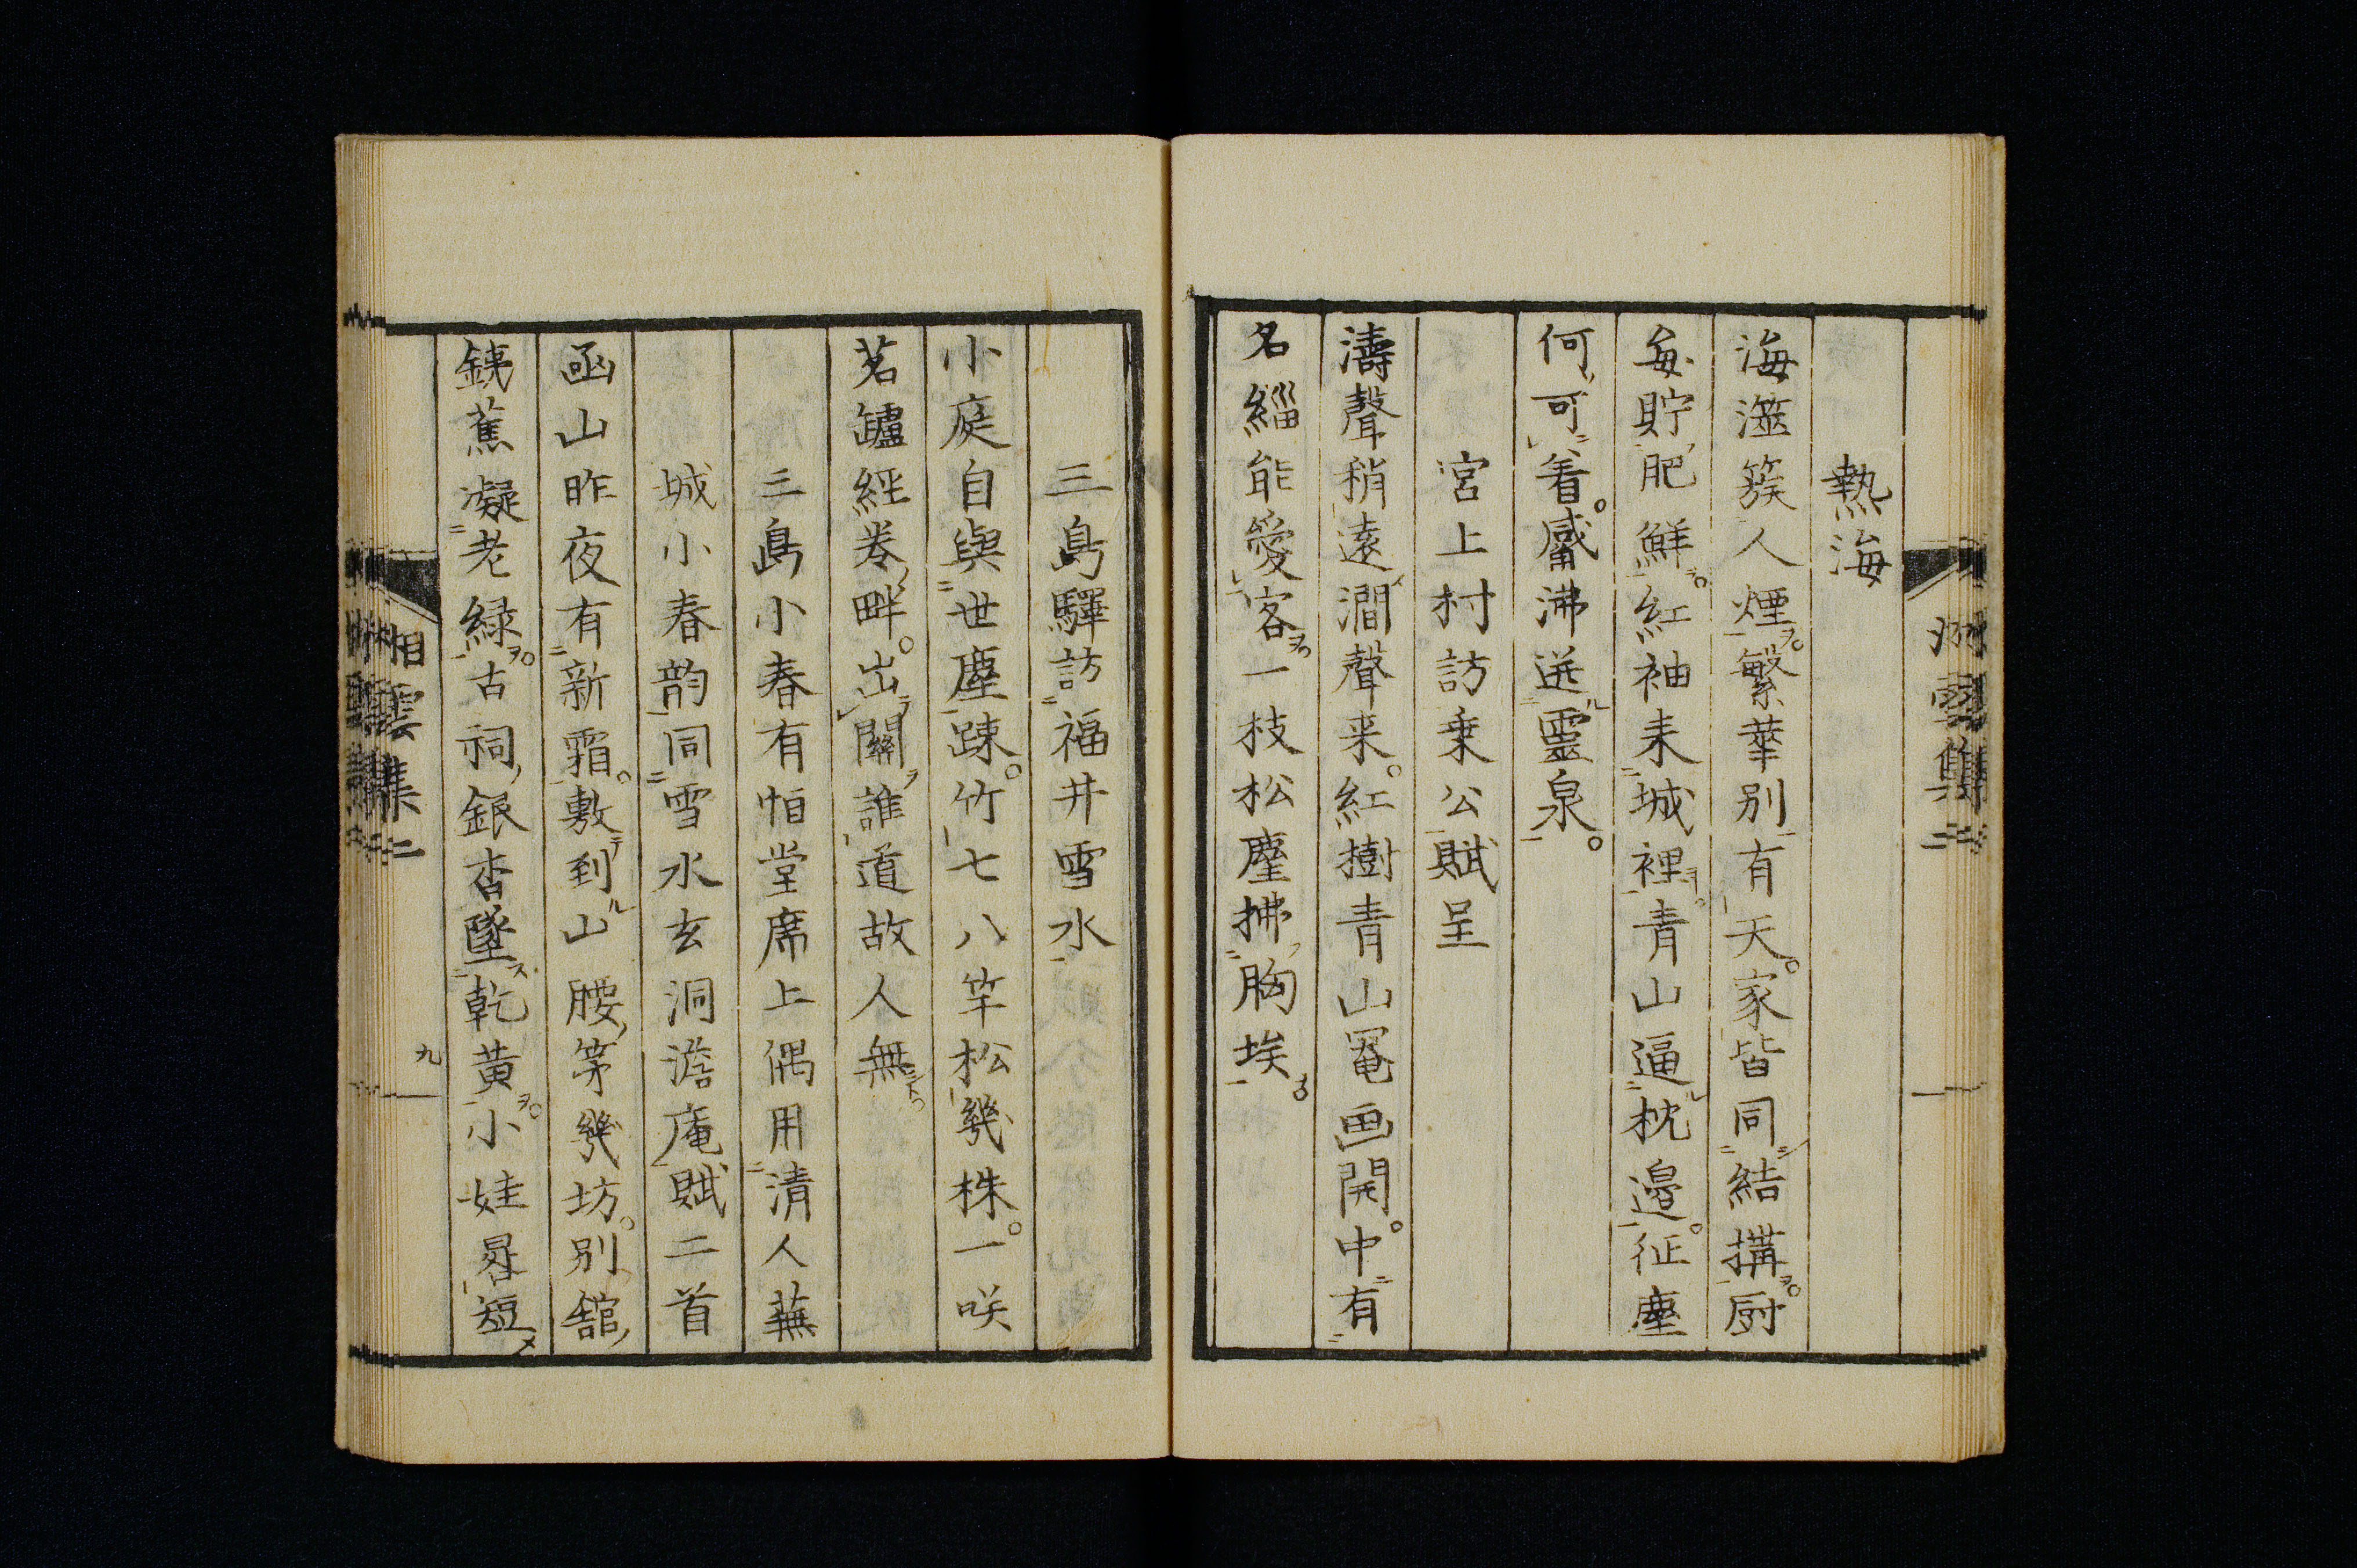 熱海
海澨簇人煙。繁華別有天。家皆同結搆。厨
每貯肥鮮。紅袖耒城裡。青山逼枕邊。征塵
何可着。觱沸迸靈泉。
宮上村訪乗公賦呈
濤聲稍遠澗聲来。紅樹青山罨画開。中有
名緇能愛客。一枝松麈拂胸埃。
三島驛訪福井雪水
小庭自與世塵踈。竹七八竿松幾株。一咲
茗罏經卷畔。出關誰道故人無。
三島小春有怕堂席上偶用清人蕪
城小春韵同雪水玄洞澹庵賦二首
凾山昨夜有新霜。敷到山腰茅幾坊。別舘
銕蕉凝老緑。古祠銀杏墜乾黄。小娃晷短
雲集二
九